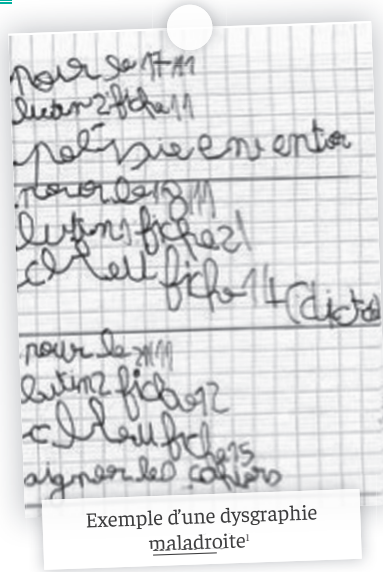 pour le 17 11
lutin 2 fiche 11
poésie en entor
pour le 18 11
lutin 1 fiche 21
cl bleu fiche 14 (dictée
pour le 211 11
lutin 2 fiche 12
cl bleu fiche 15
signer les cahiers
Exemple d'une dysgraphie
maladroite¹